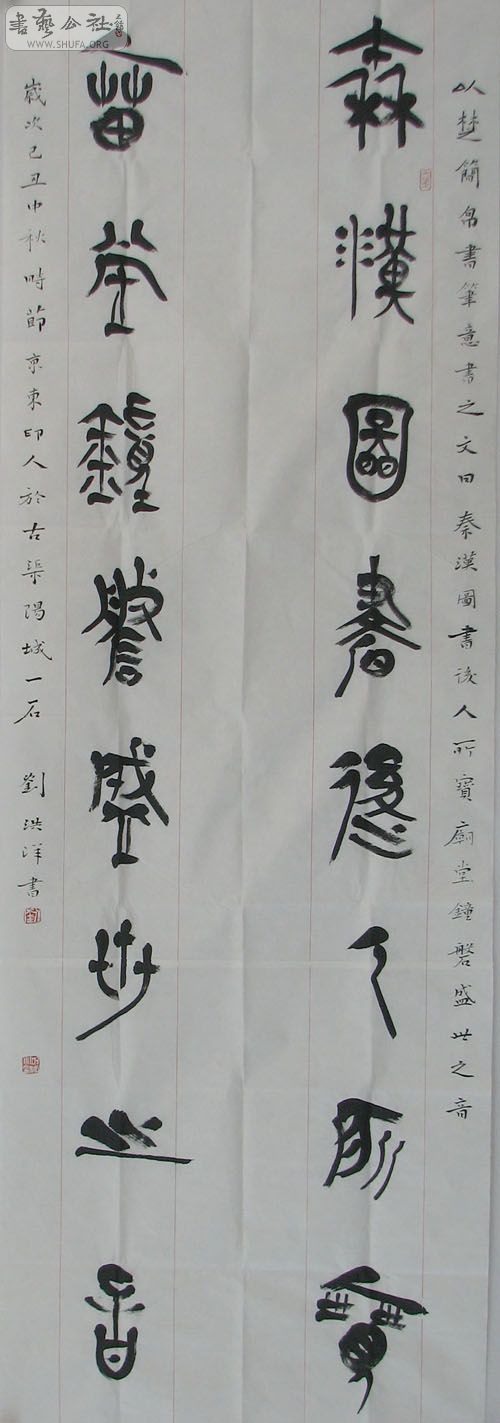 以楚簡帛書筆意書之文曰秦漢圖書後人所寶廟堂鐘磬盛世之音
秦漢圖書後人所寶
廟堂鐘磬盛世之音
歲次己丑中秋時節京東印人於古渠陽城一石 劉洪洋書
書藝公社
WWW.SHUFA.ORG